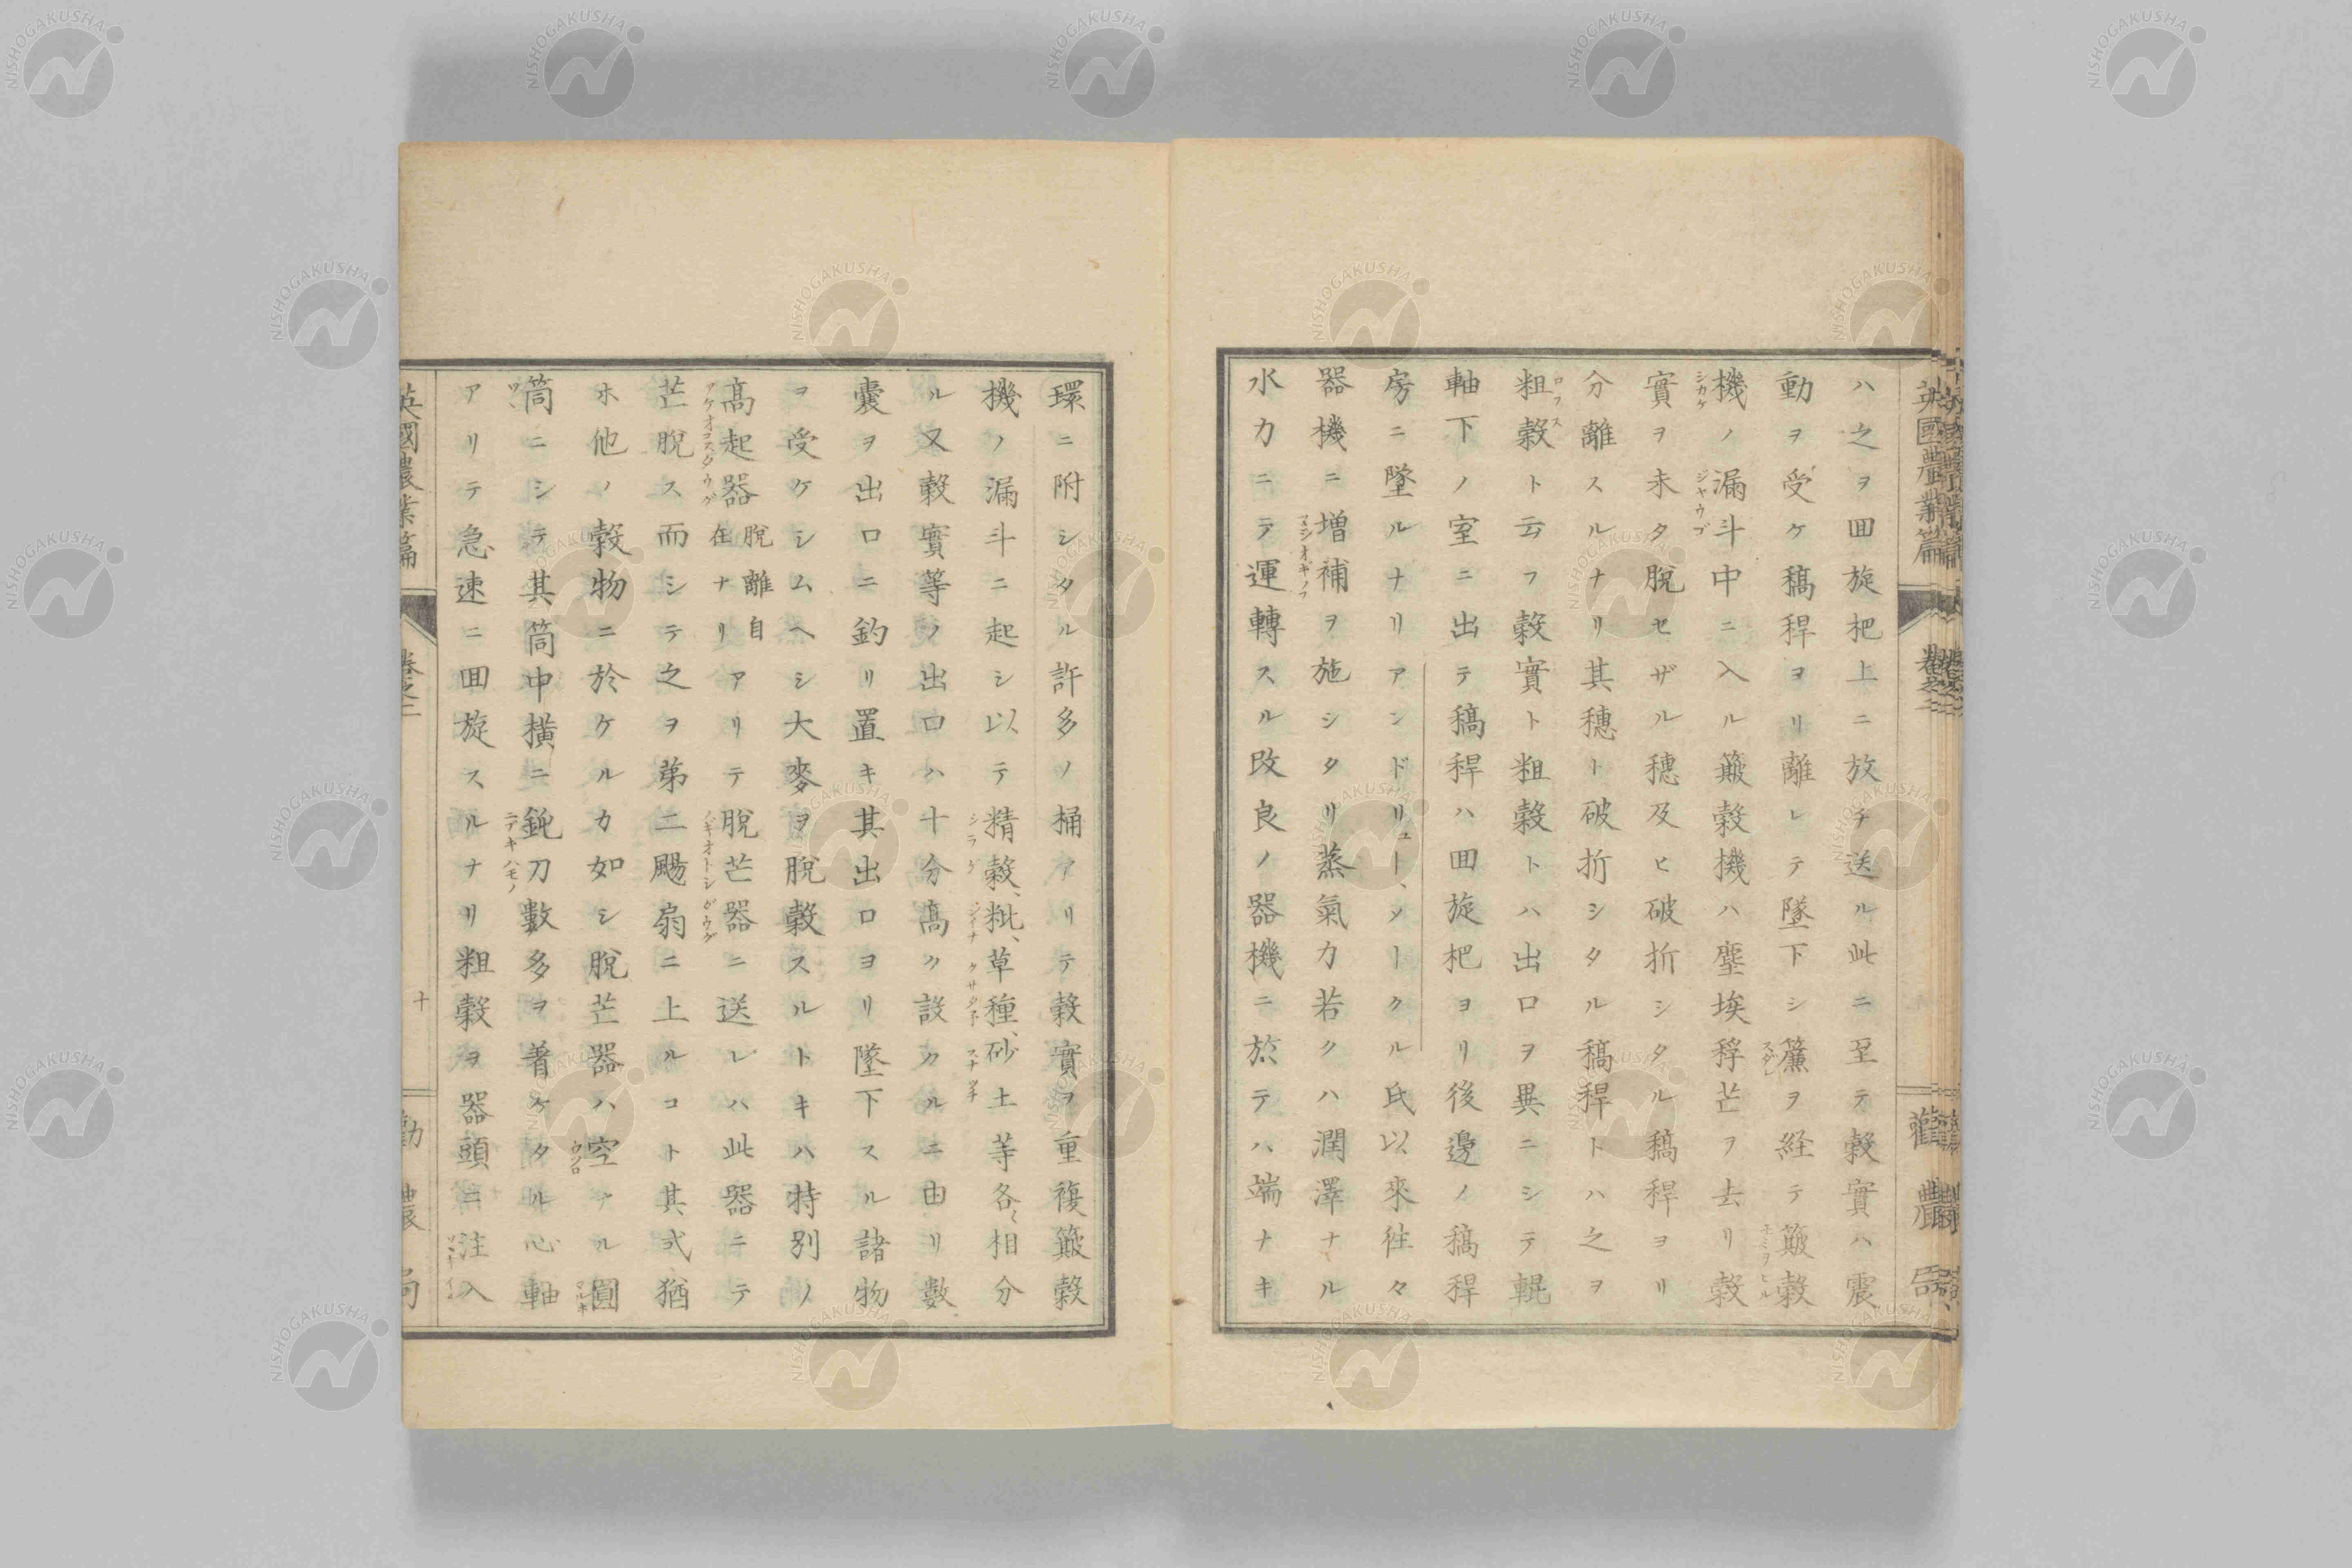 英國農業篇 卷之二 勸農局
ハ之ヲ囬旋把上ニ放チ送ル此ニ至テ穀實ハ震
動ヲ受ケ稿稈ヨリ離レテ墜下シ簾ヲ経テ簸穀
機ノ漏斗中ニ入ル簸穀機ハ塵埃稃芒ヲ去リ穀
實ヲ未タ脱セザル穗及ヒ破折シタル稿稈ヨリ
分離スルナリ其穗ト破折シタル稿稈トハ之ヲ
粗穀ト云フ穀實ト粗穀トハ出口ヲ異ニシテ輥
軸下ノ室ニ出テ稿稈ハ囬旋把ヨリ後邊ノ稿稈
房ニ墜ルナリアンドリュート、メークル氏以來徃々
器機ニ増補ヲ施シタリ蒸氣力若クハ潤澤ナル
水力ニテ運轉スル改良ノ器機ニ於テハ端ナキ
環ニ附シタル許多ノ桶アリテ穀實ヲ重複簸穀
機ノ漏斗ニ起シ以テ精穀、粃、草種、砂土等各々相分
ル又穀實等ノ出口ハ十分髙ク設クルニ由リ數
囊ヲ出口ニ釣リ置キ其出口ヨリ墜下スル諸物
ヲ受ケシムヘシ大麥ヲ脱穀スルトキハ特別ノ
髙起器脫離自在ナリアリテ脱芒器ニ送レハ此器ニテ
芒脱ス而シテ之ヲ第二颺扇ニ上ルコト其式猶
ホ他ノ穀物ニ於ケルカ如シ脱芒器ハ空アル圓
筒ニシテ其筒中横ニ鈍刀數多ヲ着ケタル心軸
アリテ急速ニ囬旋スルナリ粗穀ヲ器頭ニ注入
英國農業篇 卷之二 十 勸農局
シカケ
ジヤウゴ
スダレ
モミヲヒル
シラゲ
シイナ
アゲオコスダウグ
ウツロ
NISHOGAKUSHA